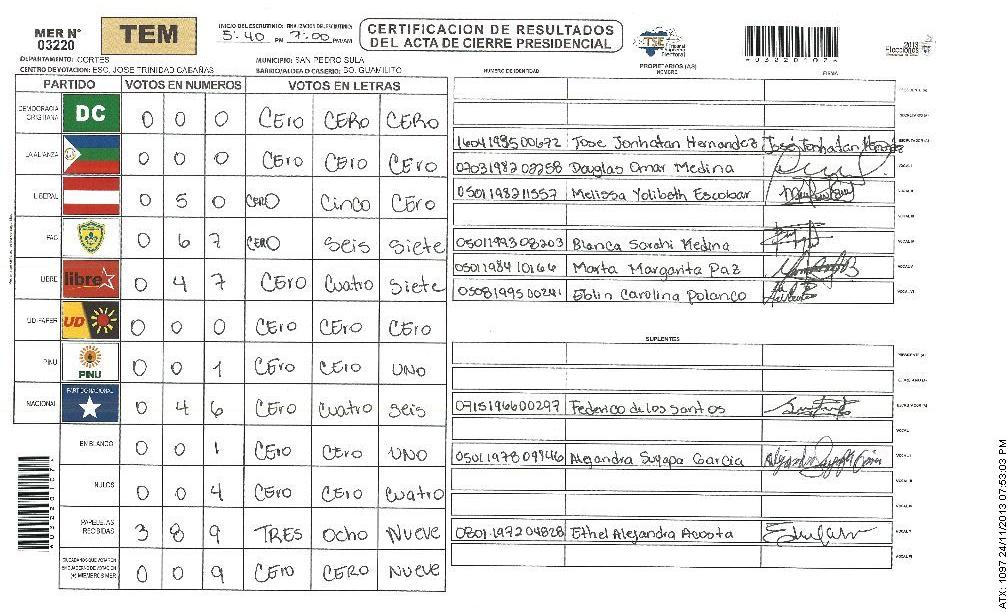 MER N° 03220
TEM
INICIO DEL ESCRUTINIO: FINALIZACION DEL ESCRUTINIO:
5:40 PM 7:00 PM/AM
CERTIFICACION DE RESULTADOS DEL ACTA DE CIERRE PRESIDENCIAL
TSE Tribunal Supremo Electoral
2013 Elecciones
DEPARTAMENTO: CORTES
MUNICIPIO: SAN PEDRO SULA
CENTRO DE VOTACION: ESC. JOSE TRINIDAD CABAÑAS
BARRIO/ALDEA O CASERIO: BO. GUAMILITO
PARTIDO VOTOS EN NUMEROS VOTOS EN LETRAS
DEMOCRACIA CRISTIANA DC 0 0 0 CEro CERO CERO
LA ALIANZA 0 0 0 CEro CEro CEro
LIBERAL 0 5 0 CERO Cinco CEro
PAC 0 6 7 CERO Seis Siete
LIBRE libre 0 4 7 CEro Cuatro Siete
UD-FAPER UD 0 0 0 CEro CEro CEro
PINU PINU 0 0 1 CEro CEro UNO
NACIONAL PARTIDO NACIONAL 0 4 6 CEro Cuatro Seis
EN BLANCO 0 0 1 CEro CEro UNO
NULOS 0 0 4 CEro CEro Cuatro
PAPELETAS RECIBIDAS 3 8 9 TRES Ocho Nueve
0 0 9 CEro CERO Nueve
NUMERO DE IDENTIDAD PROPIETARIOS (AS) NOMBRE FIRMA
1604199500672 Jose Jonhatan Hernandez José Jonhatan Hernandez
0703198202258 Douglas Omar Medina
0501198211557 Melissa Yolibeth Escobar
0501199308203 Blanca Sarahi Medina
0501198410166 Marta Margarita Paz
0508199500241 Eblin Carolina Polanco
SUPLENTES
0715196600297 Federico de los Santos
0501197809946 Alejandra Suyapa Garcia
0801197204828 Ethel Alejandra Acosta
ATX: 1097 24/11/2013 07:53:03 PM